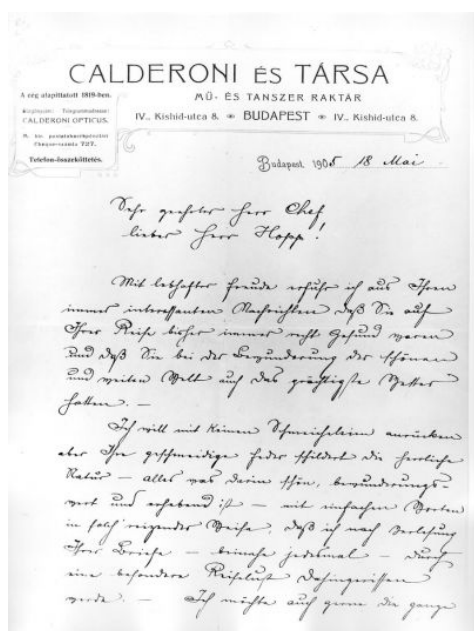 CALDERONI ÉS TÁRSA
MŰ- ÉS TANSZER RAKTÁR
IV., Kishid-utca 8. * BUDAPEST * IV., Kishid-utca 8.
A cég alapittatott 1819-ben.
CALDERONI OPTICUS.
M. kir. postatakarékpénztári
Cheque-számla 727.
Telefon-összeköttetés.
Budapest, 1905 18 Mai
Sehr geehrter Herr Chef
lieber Herr Hopp!
Mit lebhafter Freude erfuhr ich aus Ihren
immer interessanten Nachrichten daß Sie auf
Ihrer Reise bisher immer recht Gesund waren
und daß Sie bei der Bewunderung der schönen
und weiten Welt auch das prächtigste Wetter
hatten. —
Ich will mit keinen Schmeicheleien anrücken
aber Ihre geschmeidige Feder schildert die herrliche
Natur — alles was darin schön, bewunderungs-
wert und erhebend ist — mit einfachen Worten
in solch reizender Weise, daß ich nach Verlesung
Ihrer Briefe — beinahe jedesmal — durch
eine besondere Reiselust dahingerissen
werde. — Ich möchte auch gerne die ganze